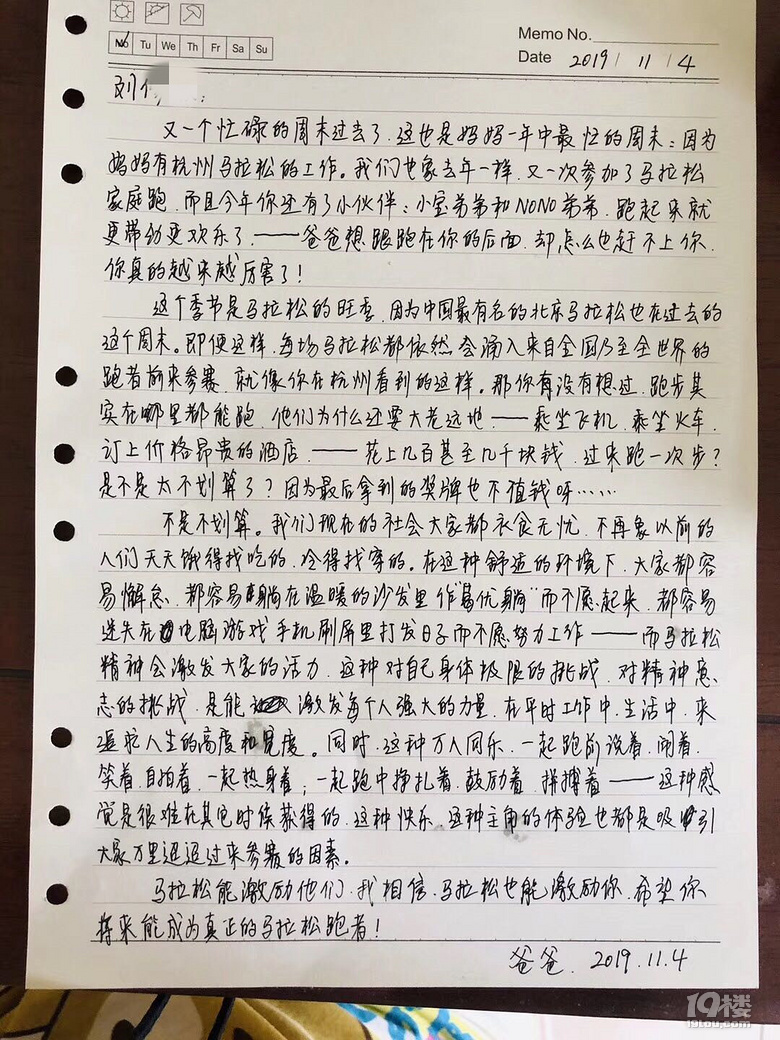 Memo No.
Mo Tu We Th Fr Sa Su
Date 2019 / 11 / 4
刘
又一个忙碌的周末过去了，这也是妈妈一年中最忙的周末：因为
妈妈有杭州马拉松的工作。我们也象去年一样，又一次参加了马拉松
家庭跑，而且今年你还有了小伙伴：小宝弟弟和NONO弟弟，跑起来就
更带劲更欢乐了——爸爸想跟跑在你的后面，却怎么也赶不上你，
你真的越来越厉害了！
这个季节是马拉松的旺季，因为中国最有名的北京马拉松也在过去的
这个周末。即便这样，每场马拉松都依然会涌入来自全国乃至全世界的
跑者前来参赛，就像你在杭州看到的这样。那你有没有想过，跑步其
实在哪里都能跑，他们为什么还要大老远地——乘坐飞机，乘坐火车，
订上价格昂贵的酒店，——花上几百甚至几千块钱，过来跑一次步？
是不是太不划算了？因为最后拿到的奖牌也不值钱呀……
不是不划算。我们现在的社会大家都衣食无忧，不再象以前的
人们天天饿得找吃的，冷得找穿的。在这种舒适的环境下，大家都容
易懈怠，都容易躺在温暖的沙发里作“葛优躺”而不愿起来，都容易
迷失在电脑游戏手机刷屏里打发日子而不愿努力工作——而马拉松
精神会激发大家的活力，这种对自己身体极限的挑战，对精神意
志的挑战，是能激发每个人强大的力量，在平时工作中，生活中，来
追求人生的高度和宽度。同时，这种万人同乐，一起跑前说着，闹着，
笑着，自拍着，一起热身着；一起跑中挣扎着，鼓励着，拼搏着——这种感
觉是很难在其它时候获得的，这种快乐，这种主角的体验也都是吸引
大家万里迢迢过来参赛的因素。
马拉松能激励他们，我相信，马拉松也能激励你，希望你
将来能成为真正的马拉松跑者！
爸爸．2019.11.4
19楼
19lou.com